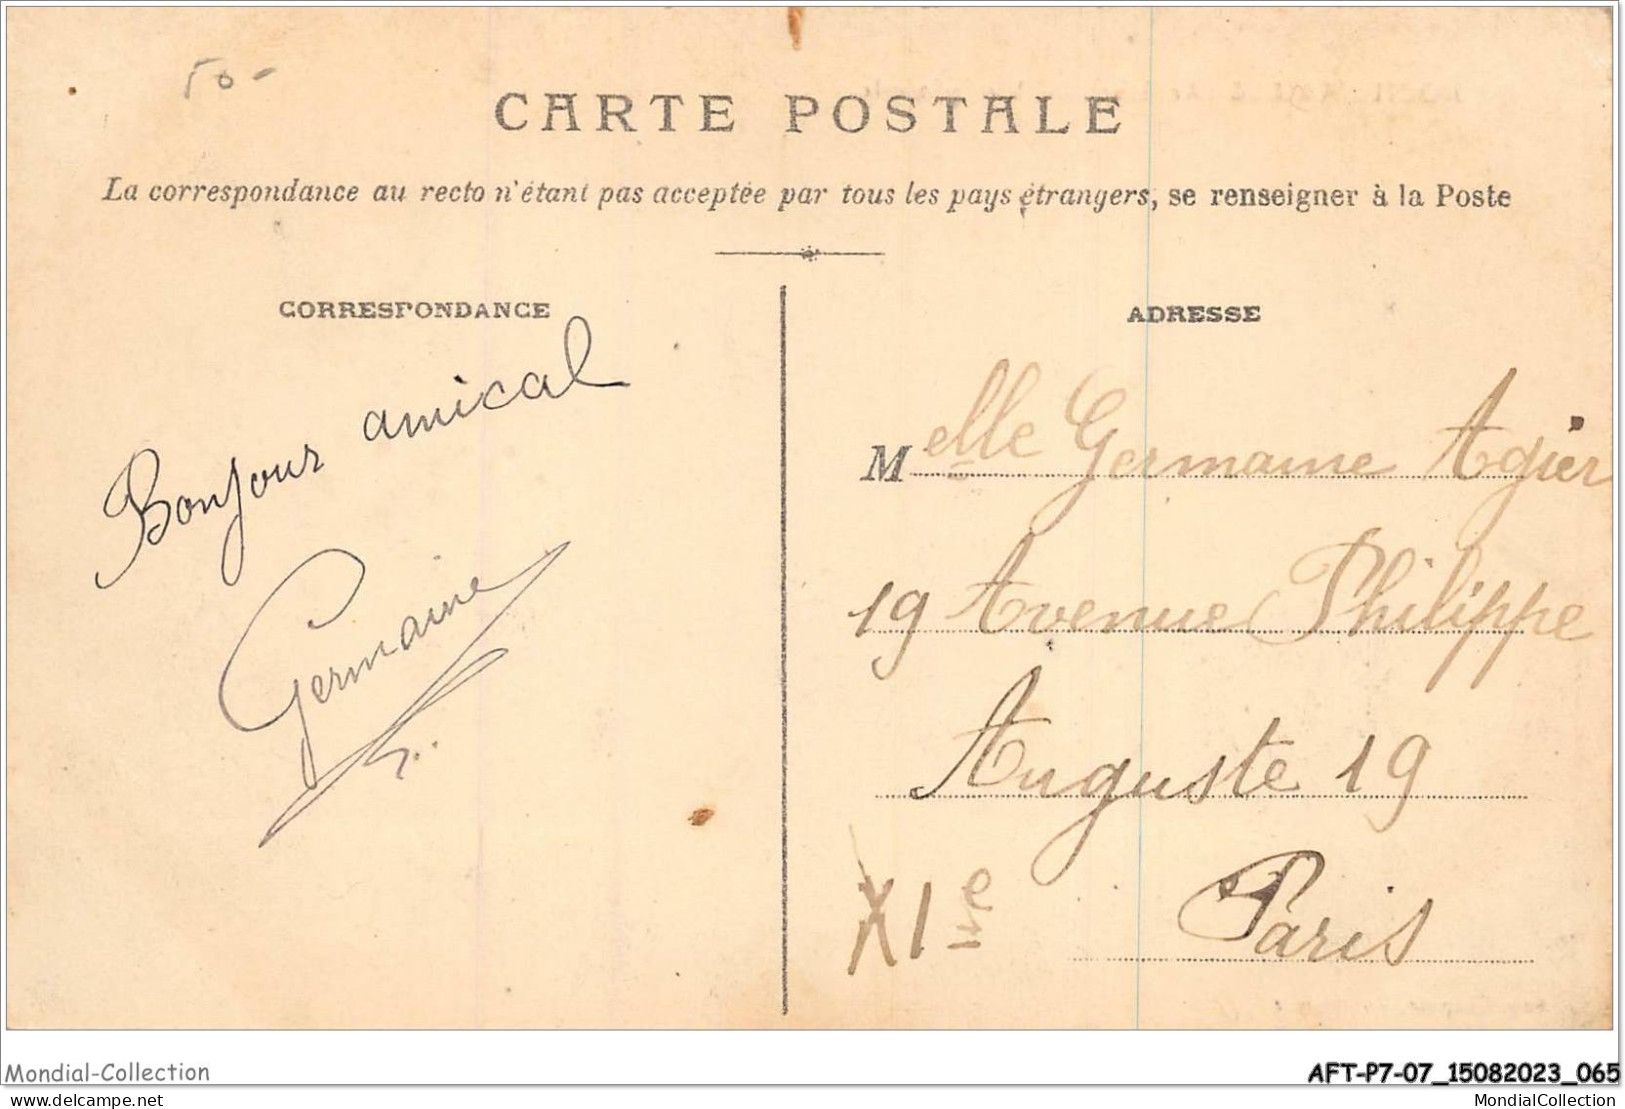 50-
CARTE POSTALE
La correspondance au recto n'étant pas acceptée par tous les pays étrangers, se renseigner à la Poste
CORRESPONDANCE
Bonjour amical
Germaine
ADRESSE
Melle Germaine Agier
19 Avenue Philippe
Auguste 19
XIe Paris
Mondial-Collection
AFT-P7-07_15082023_065
mondial-collection
MondialCollection